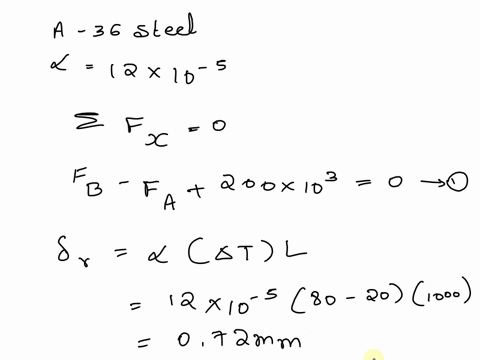 A - 36 steel
α = 12 × 10⁻⁵
Σ Fₓ = 0
F_B - F_A + 200×10³ = 0 → ①
δᵣ = α (ΔT) L
= 12 × 10⁻⁵ (80 - 20) (1000)
= 0.72mm